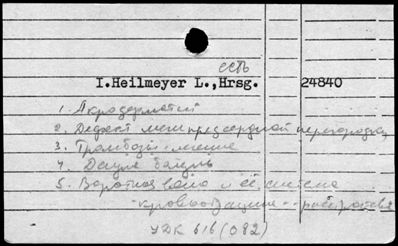 есть
I.Heilmeyer L.,Hrsg. 24840
1. Акродерматит
2. Дефект межпредсердной перегородки
3. Тромбозы лечение
4.
5. Воротная вена и её система
- кровообращение - расстройства
УДК 616(082)